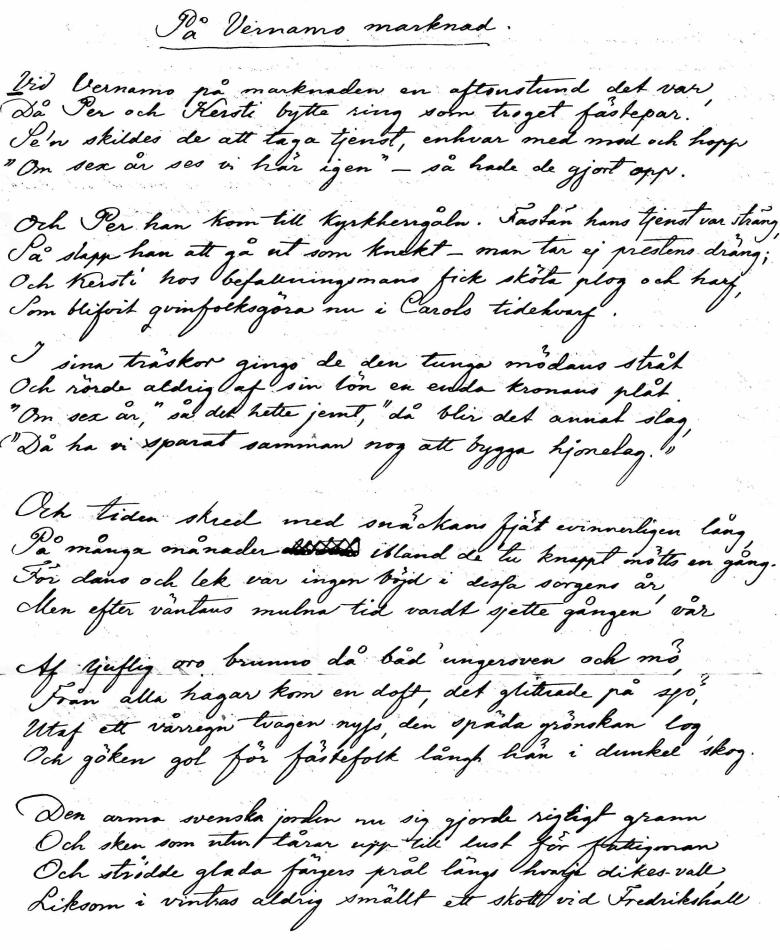 På Vernamo marknad.
Vid Vernamo på marknaden en aftonstund det var,
Då Per och Kersti bytte ring som troget fästepar.
Se'n skildes de att taga tjenst, enhvar med mod och hopp
"Om sex år ses vi här igen" – så hade de gjort opp.
Och Per han kom till kyrkherrgåln. Fastän hans tjenst var sträng,
Så slapp han att gå ut som knekt – man tar ej prestens dräng;
Och Kersti hos befallningsmans fick sköta plog och harf,
Som blifvit qvinfolksgöra nu i Carols tidehvarf.
I sina träskor gingo de den tunga mödans stråt
Och rörde aldrig af sin lön en enda kronans plåt.
"Om sex år," så det hette jemt, "då blir det annat slag,
"Då ha vi sparat samman nog att bygga hjonelag."
Och tiden skred med snäckans fjät evinnerligen lång,
På många månader ibland de tu knappt mötts en gång.
För dans och lek var ingen böjd i dessa sorgens år,
Men efter väntans mulna tid vardt sjette gången vår
Af ljuflig oro brunno då båd' ungersven och mö,
Från alla hagar kom en doft, det glittrade på sjö,
Utaf ett vårregn tvagen nyss, den späda grönskan log
Och göken gol för fästefolk långt hän i dunkel skog.
Den arma svenska jorden nu sig gjorde rigtigt grann
Och sken som utur tårar upp till lust för fattigman
Och strödde glada färgers prål längs hvarje dikes-vall,
Liksom i vintras aldrig smällt ett skott vid Fredrikshall